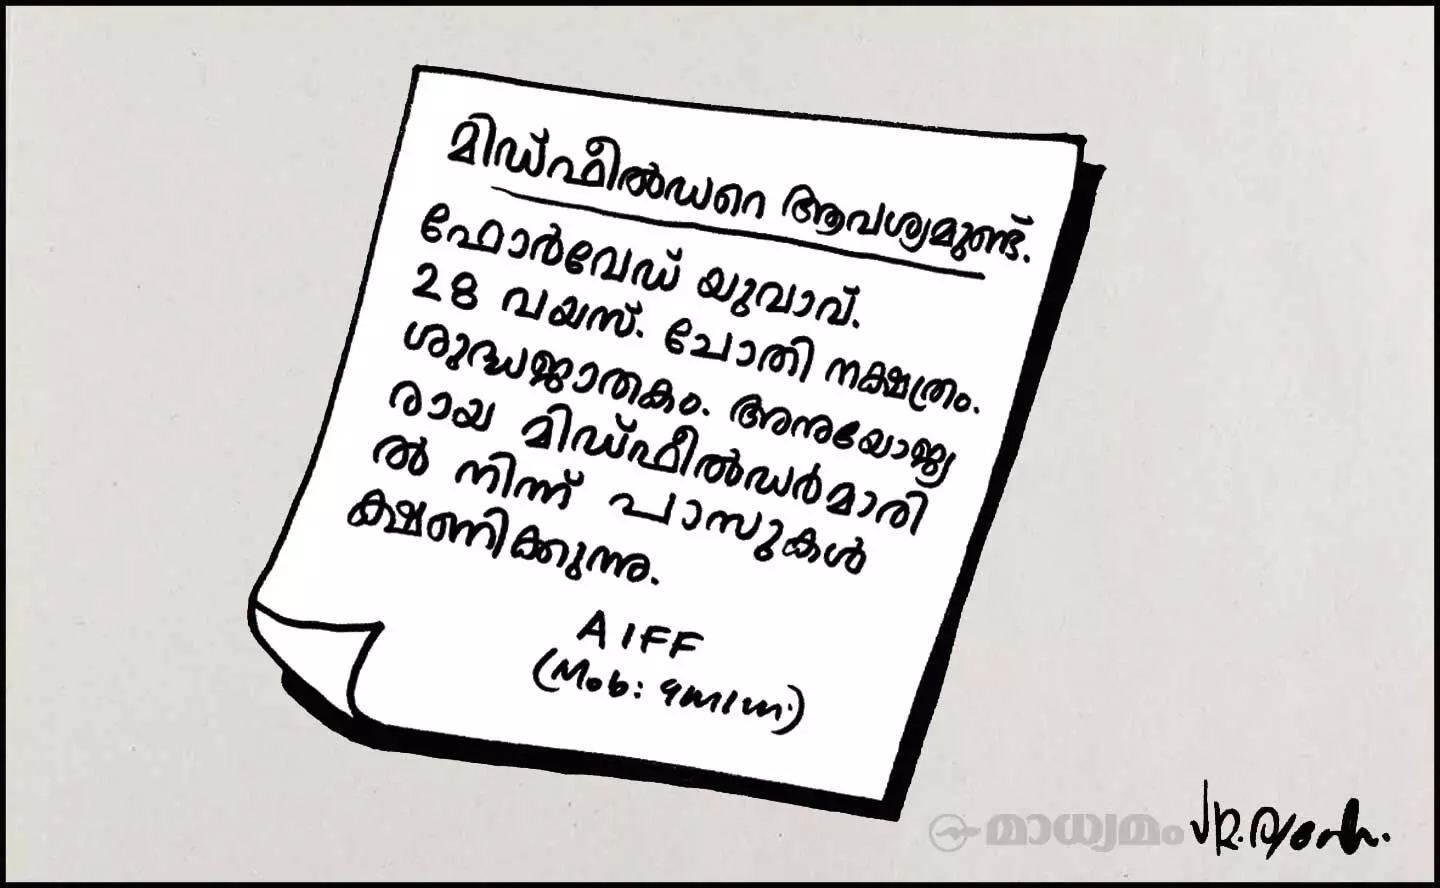 മിഡ്ഫീൽഡറെ ആവശ്യമുണ്ട്.
ഫോർവേഡ് യുവാവ്.
28 വയസ്. ചോതി നക്ഷത്രം.
ശുദ്ധജാതകം. അനുയോജ്യ
രായ മിഡ്ഫീൽഡർമാരി
ൽ നിന്ന് പാസുകൾ
ക്ഷണിക്കുന്നു.
AIFF
(Mob:
മാധ്യമം